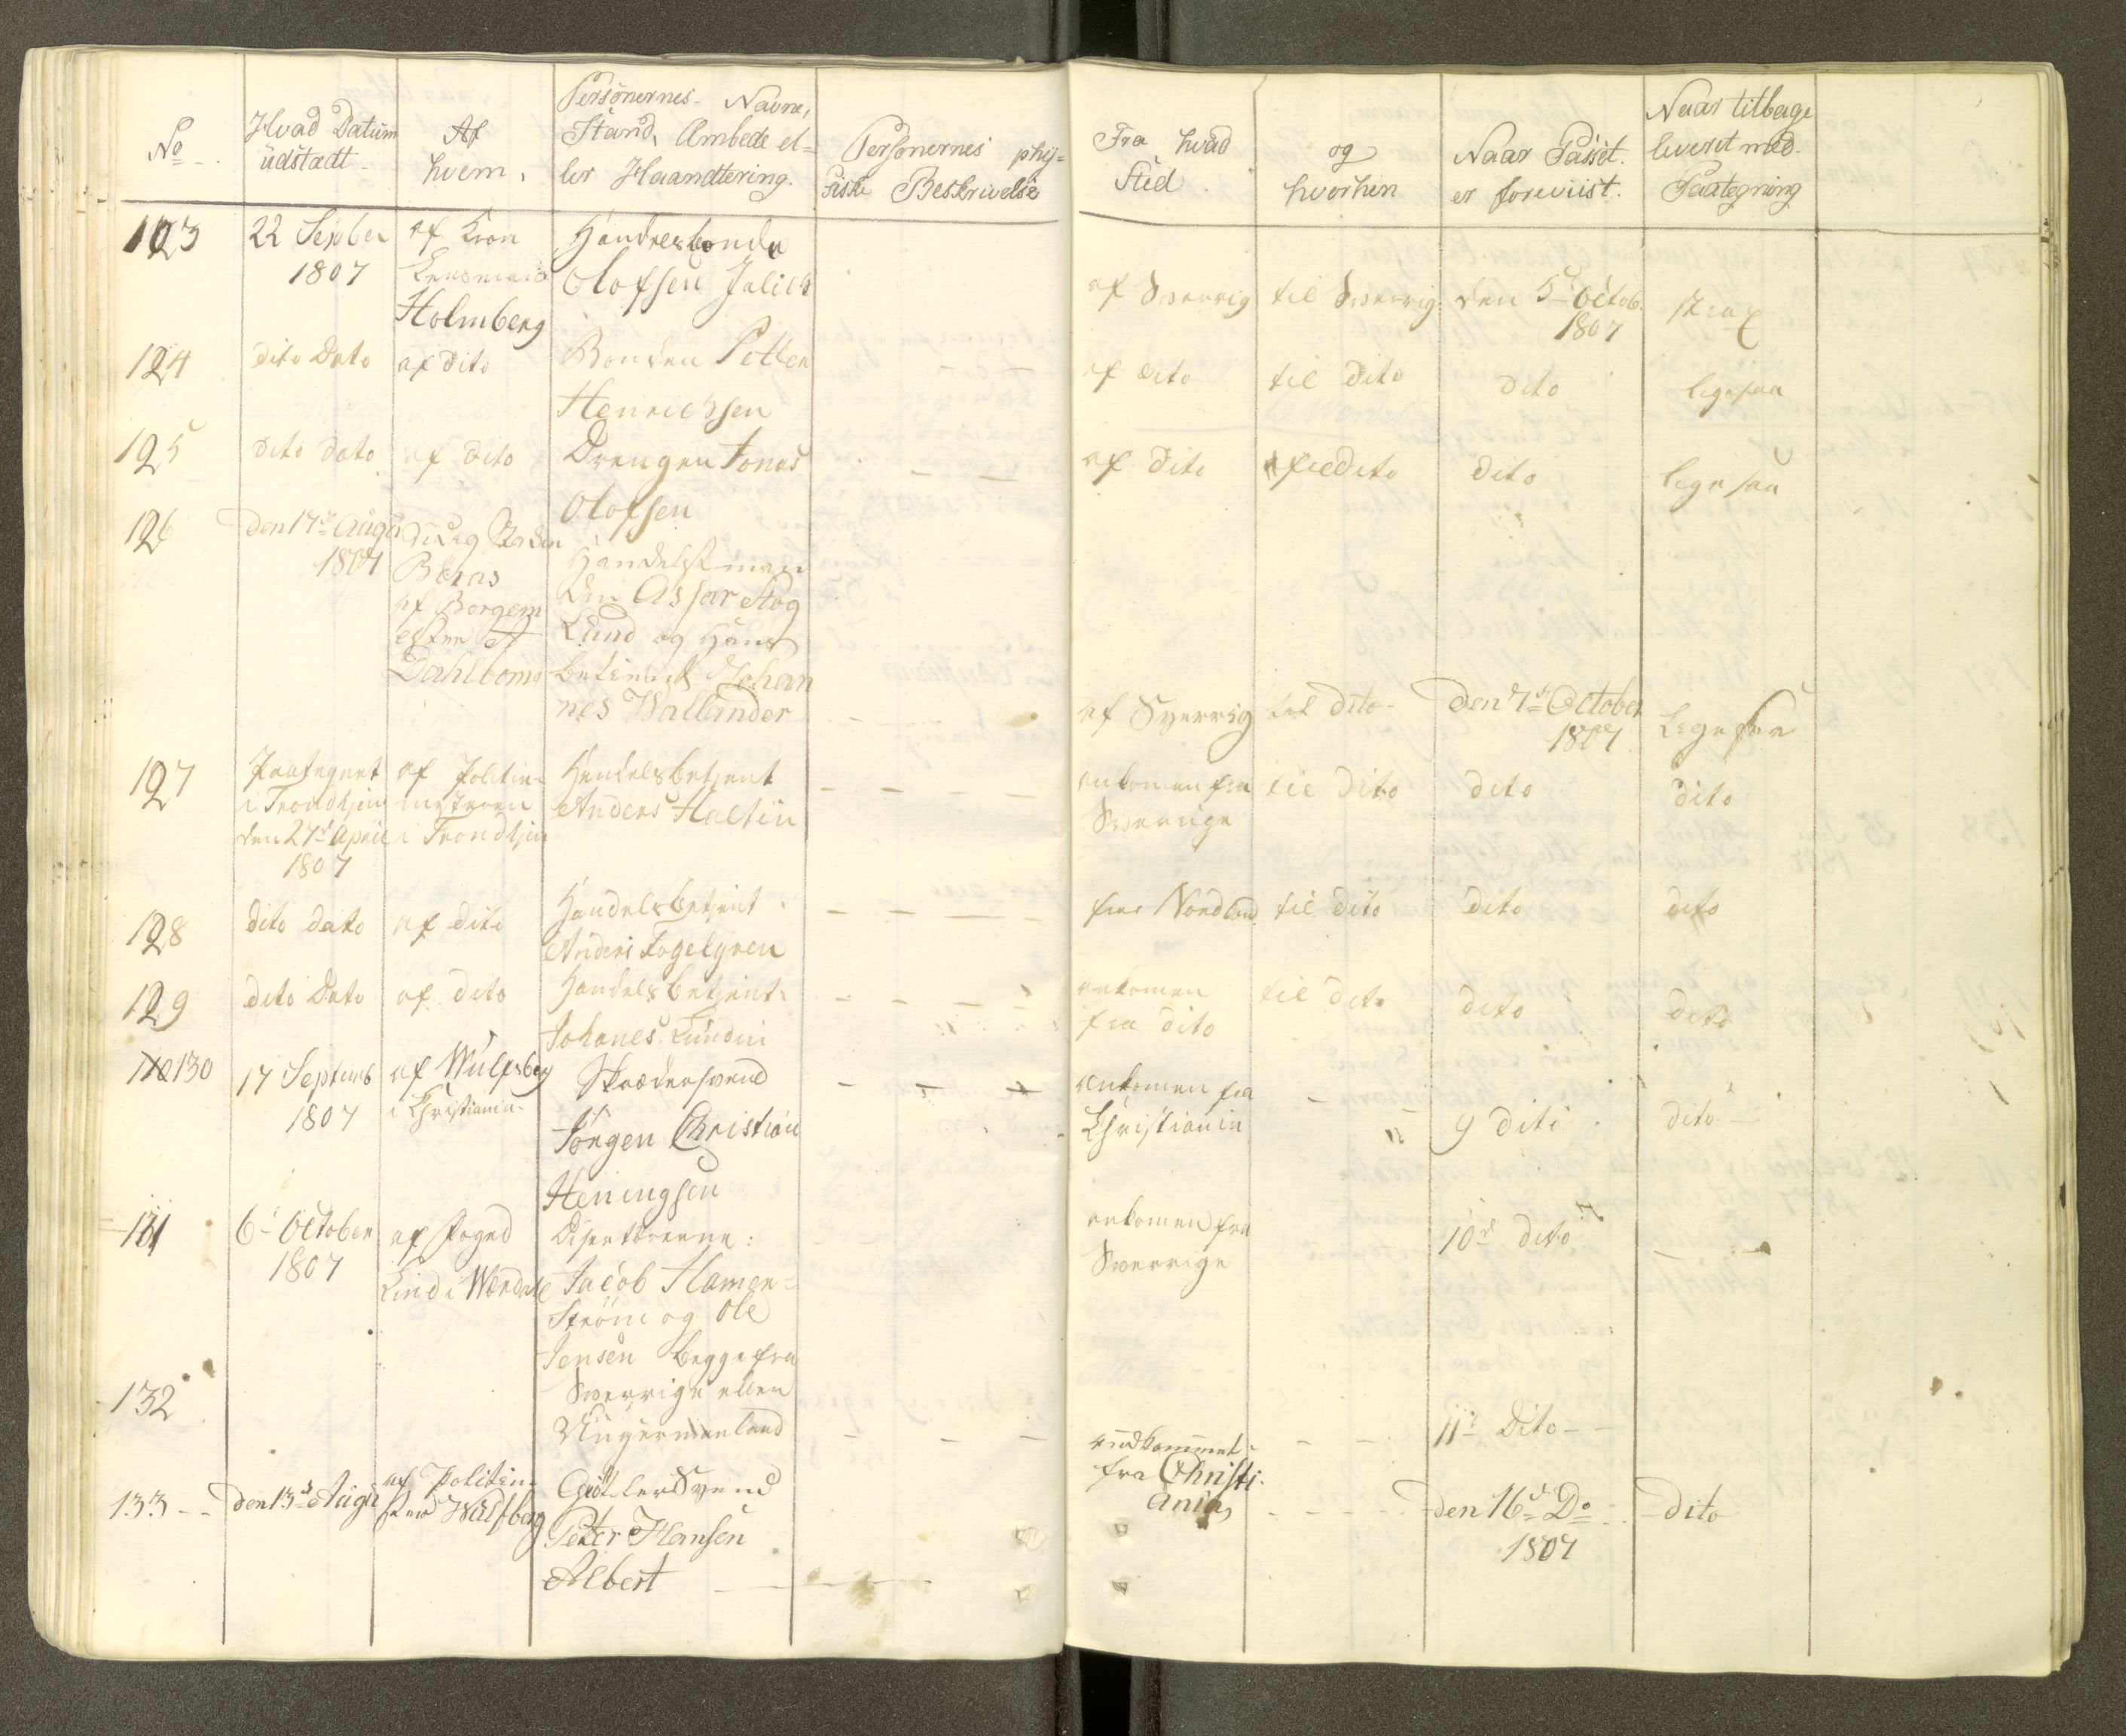 No
Hvad Datum
udstædt
Af
hvem,
Personernes Navne,
Stand, Ambede el=
ler Haandtering.
Personernes phy=
siske Beskrivelse
Fra hvad
Sted
og
hvorhen
Naar Passet
er foreviist.
Naar tilbage
leveret med
Paategning
123
22 Septber
1807
af Kron
Lensmand
Holmberg
Olofsen
af Sverrig
til Sverrig
den 5t Octob.
1807
strax
124
dito Dato
af dito
Bonden Petter
Henrichsen
af dito
til dito
dito
ligesaa
125
dito dato
af dito
Drengen Jonas
Olofsen
af dito
til dito
dito
ligesaa
126
Den 17de Augu
1807
Borås
af Borgem
ester A
Dahlbom
Handelsman
den Assar Skog
Lund og Hans
betient Johan
nes Wallander
af Sverrig
til dito
den 7de October
1807
Ligesaa
127
Paategnet
i Trondhjem
den 27de April
1807
af Politie
mesteren
i Trondhjem
Handelsbetjent
Anders Haltin
ankomen fra
Sverrige
til dito
dito
dito
128
dito dato
af dito
Handelsbetjent
Anders Fogelgren
fra Nordland
til dito
dito
dito
129
dito Dato
af dito
Handelsbetjent
Johanes Lundin
ankomen
fra dito
til dito
dito
dito
130
17 Septemb
1807
af Wulfsberg
i Christiania
Skrædersvend
Jörgen Christian
Heningsen
ankomen fra
Christiania
9 dito
dito
131
6t October
1807
af Foged
Lind i Værdale
Desertörerne:
Jacob Hamer=
ström og Ole
Jensen begge fra
Sverrige eller
Angermanland
ankomen fra
Sverrige
10de dito
132
11t Dito
133
den 13de Augu
af Politie
Wulfsberg
Gütler Svend
Peter Hansen
Albert
andkommet
fra Christi
ania
den 16de Do
1807
dito